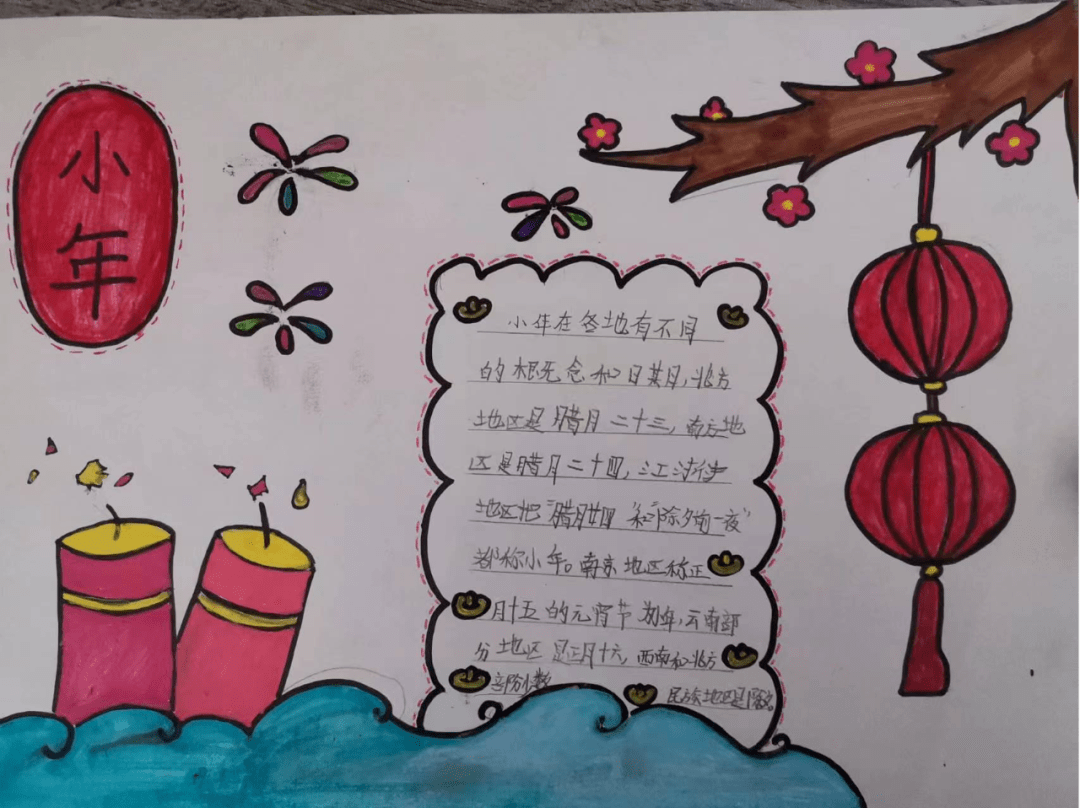 小年
小年在各地有不同
的概念和日期,北方
地区是腊月二十三,南方地
区是腊月二十四,江浙
地区把"腊月廿四"和"除夕前一夜"
都称小年。南京地区称正
月十五的元宵节为小年,云南部
分地区是正月十六,西南和北方
部分少数
民族地区是除夕。